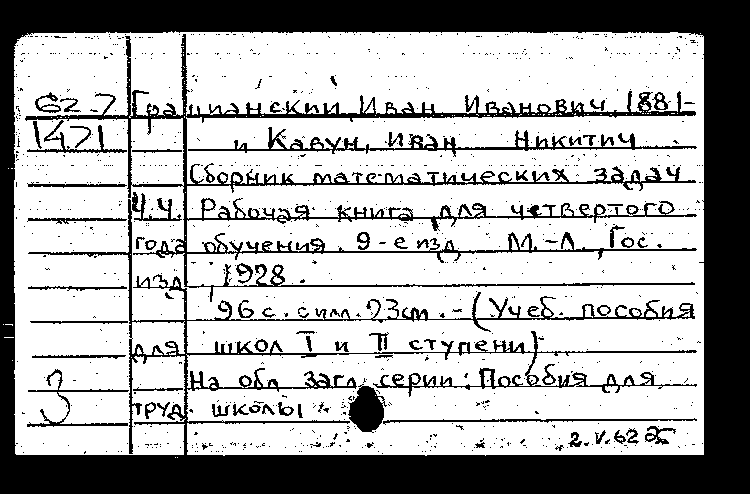 62-7 Грацианский, Иван Иванович, 1881-
1471 и Кавун, Иван Никитич
Сборник математических задач
Ч.4. Рабочая книга для четвертого
года обучения. 9-е изд. М.-Л., Гос.
изд., 1928.
96 с. с илл. 23 см. - (Учеб. пособия
для школ I и II ступени).
На обл. загл. серии: Пособия для
3 труд. школы
2.V.62